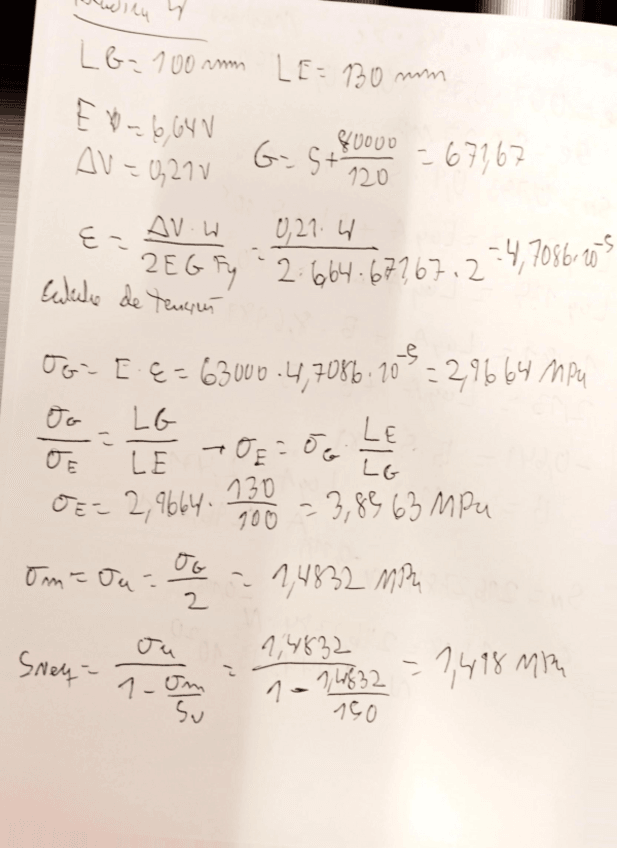 LG = 100 mm LE = 130 mm
EV = 6,64 V
ΔV = 0,21 V G = 5 + 80000/120 = 671,67
ε = ΔV · 4 / 2EG Fy = 0,21 · 4 / 2 · 6,64 · 671,67 · 2 = 4,7086 · 10^-5
de
σG = E · ε = 63000 · 4,7086 · 10^-5 = 2,9664 MPa
σG/σE = LG/LE → σE = σG · LE/LG
σE = 2,9664 · 130/100 = 3,8563 MPa
σm = σa = σG/2 = 1,4832 MPa
SNeq = σa / 1 - σm/Su = 1,4832 / 1 - 1,4832/150 = 1,498 MPa